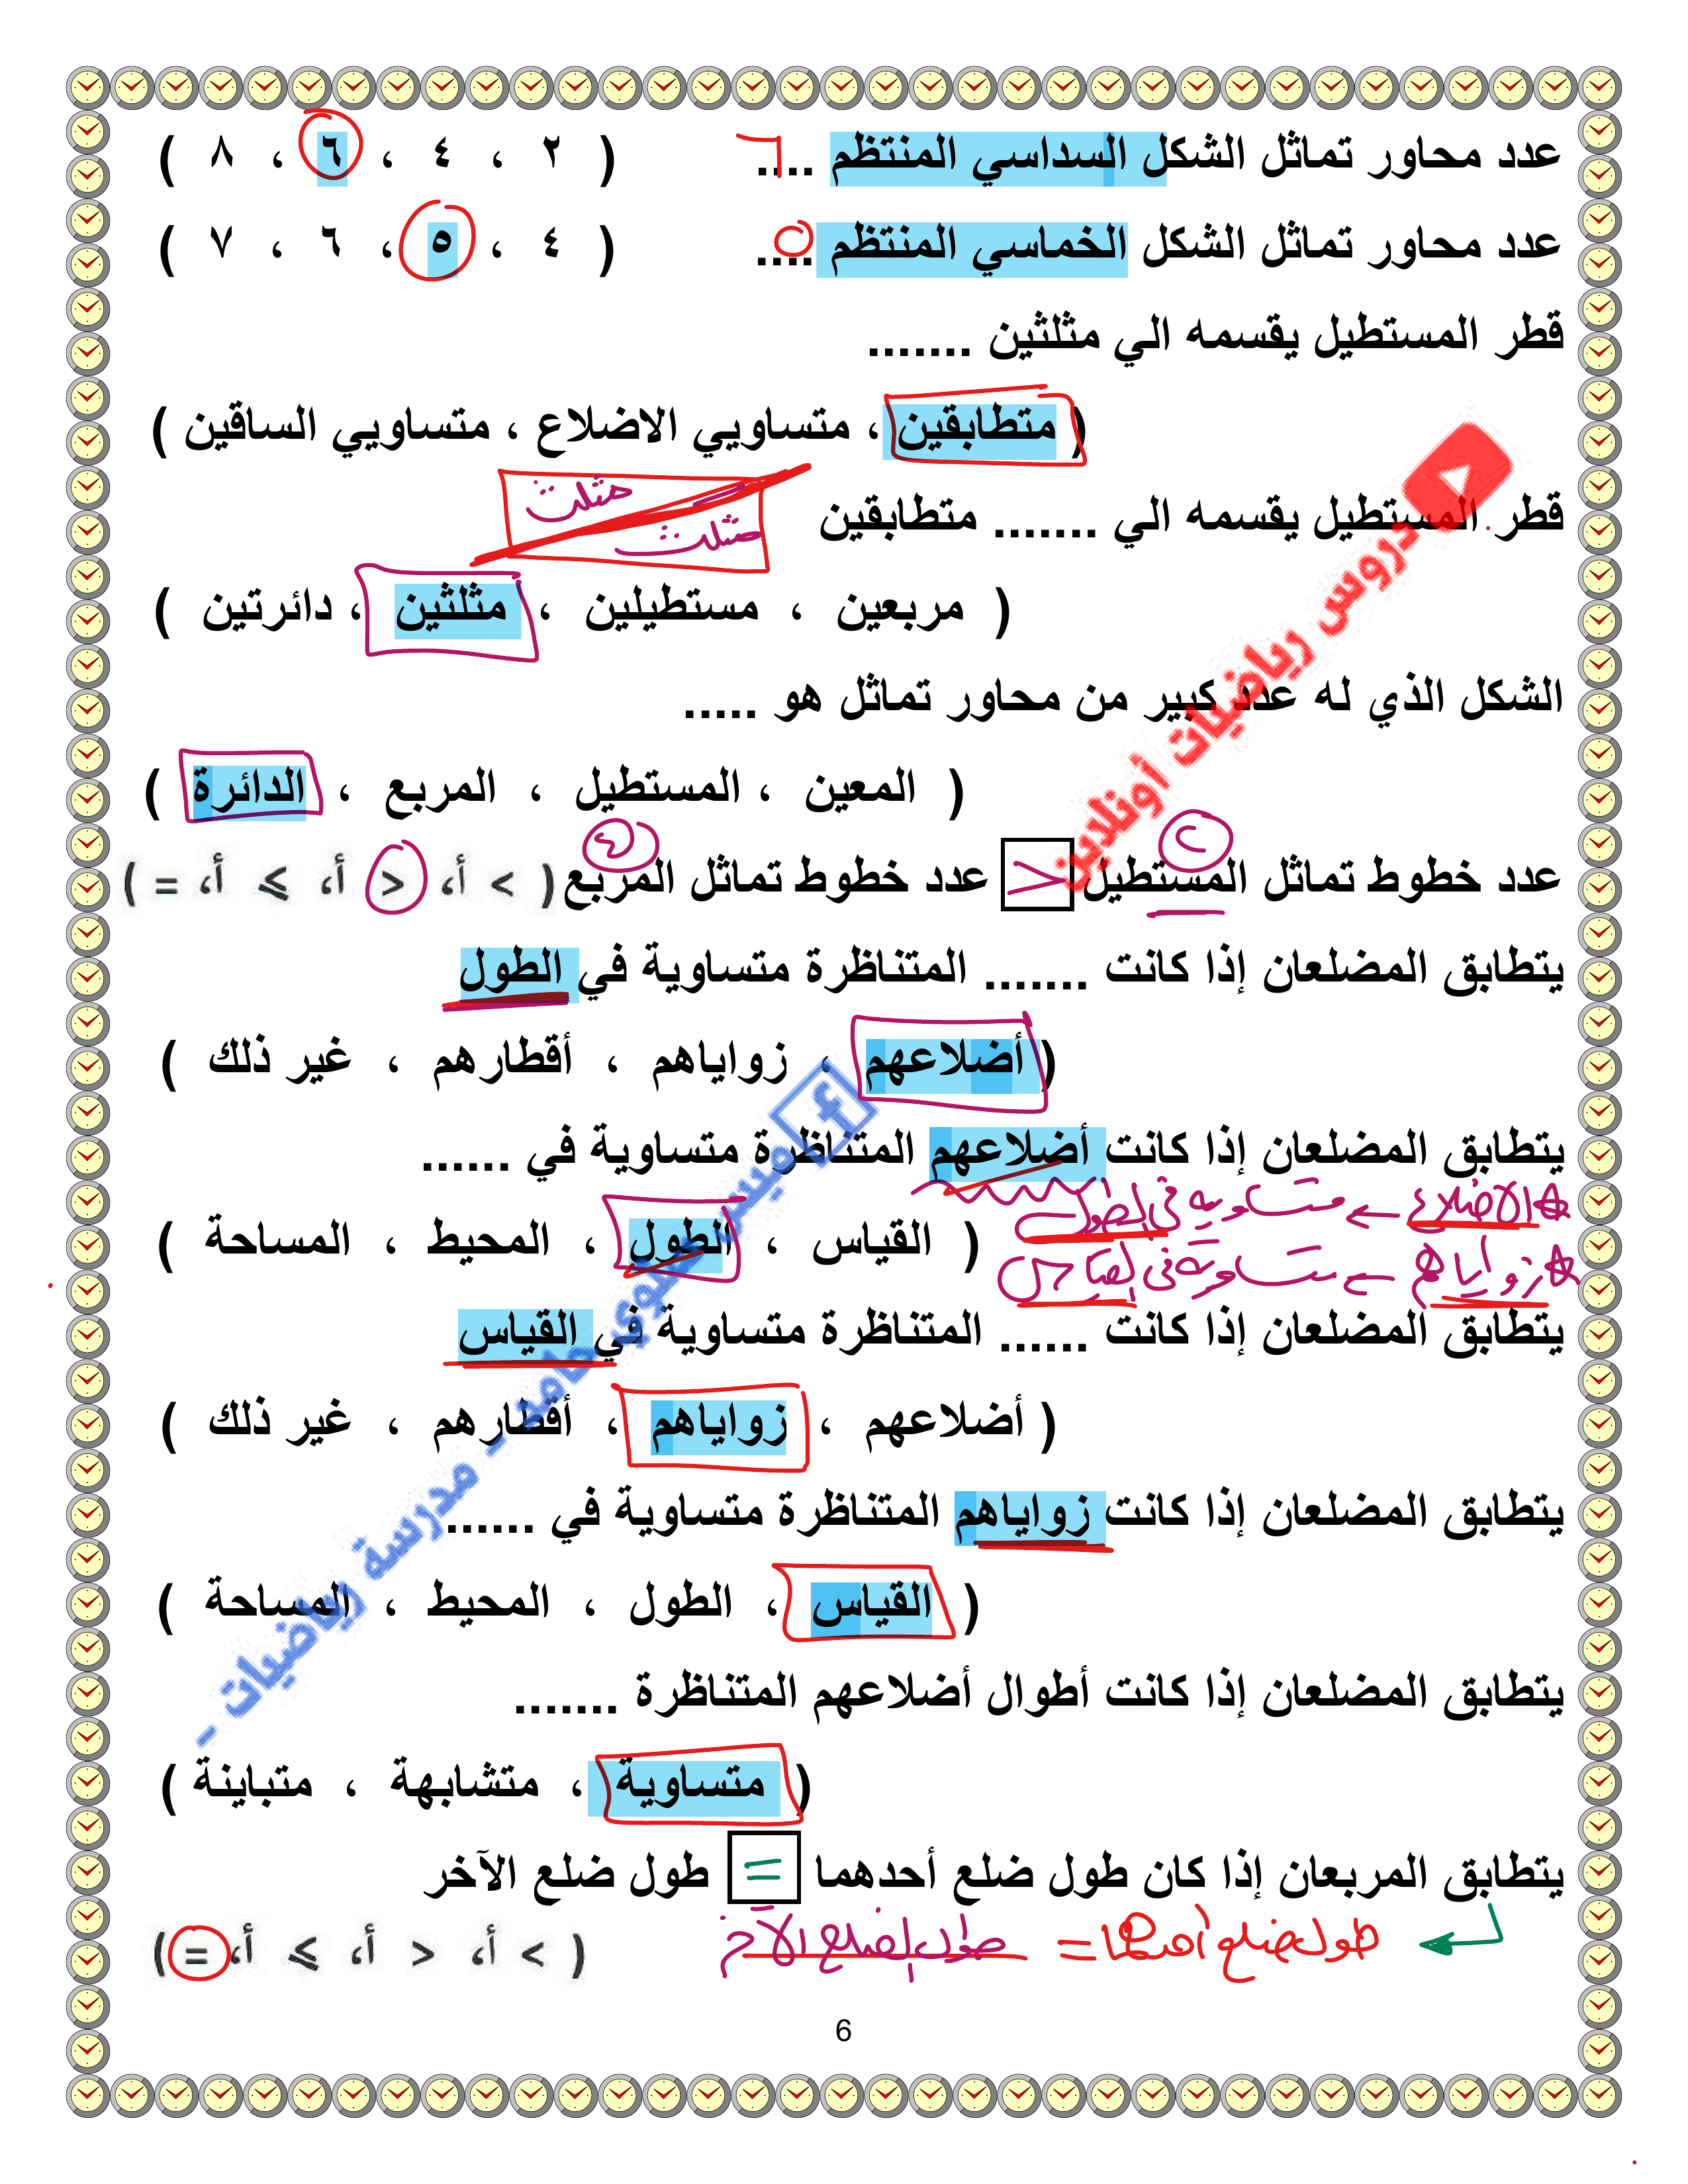 عدد محاور تماثل الشكل السداسي المنتظم .... ٦ ( ٢ ، ٤ ، ٦ ، ٨ )
عدد محاور تماثل الشكل الخماسي المنتظم .... ٥ ( ٤ ، ٥ ، ٦ ، ٧ )
قطر المستطيل يقسمه الي مثلثين .......
( متطابقين ، متساويي الاضلاع ، متساويي الساقين )
مثلث
قطر المستطيل يقسمه الي ....... متطابقين
مثلث
( مربعين ، مستطيلين ، مثلثين ، دائرتين )
الشكل الذي له عدد كبير من محاور تماثل هو .....
( المعين ، المستطيل ، المربع ، الدائرة )
٢ ٤
عدد خطوط تماثل المستطيل > عدد خطوط تماثل المربع ( > أ، < أ، ⩾ أ، = )
يتطابق المضلعان إذا كانت ....... المتناظرة متساوية في الطول
( أضلاعهم ، زواياهم ، أقطارهم ، غير ذلك )
يتطابق المضلعان إذا كانت أضلاعهم المتناظرة متساوية في ......
الاضلاع ← متساوية في الطول
( القياس ، الطول ، المحيط ، المساحة )
زواياهم ← متساوية في القياس
يتطابق المضلعان إذا كانت ...... المتناظرة متساوية في القياس
( أضلاعهم ، زواياهم ، أقطارهم ، غير ذلك )
يتطابق المضلعان إذا كانت زواياهم المتناظرة متساوية في ......
( القياس ، الطول ، المحيط ، المساحة )
يتطابق المضلعان إذا كانت أطوال أضلاعهم المتناظرة .......
( متساوية ، متشابهة ، متباينة )
يتطابق المربعان إذا كان طول ضلع أحدهما = طول ضلع الآخر
طول ضلع أحدهما = طول الضلع الآخر
( > أ، < أ، ⩾ أ، = )
6
دروس رياضيات أونلاين
مدرسة رياضيات -